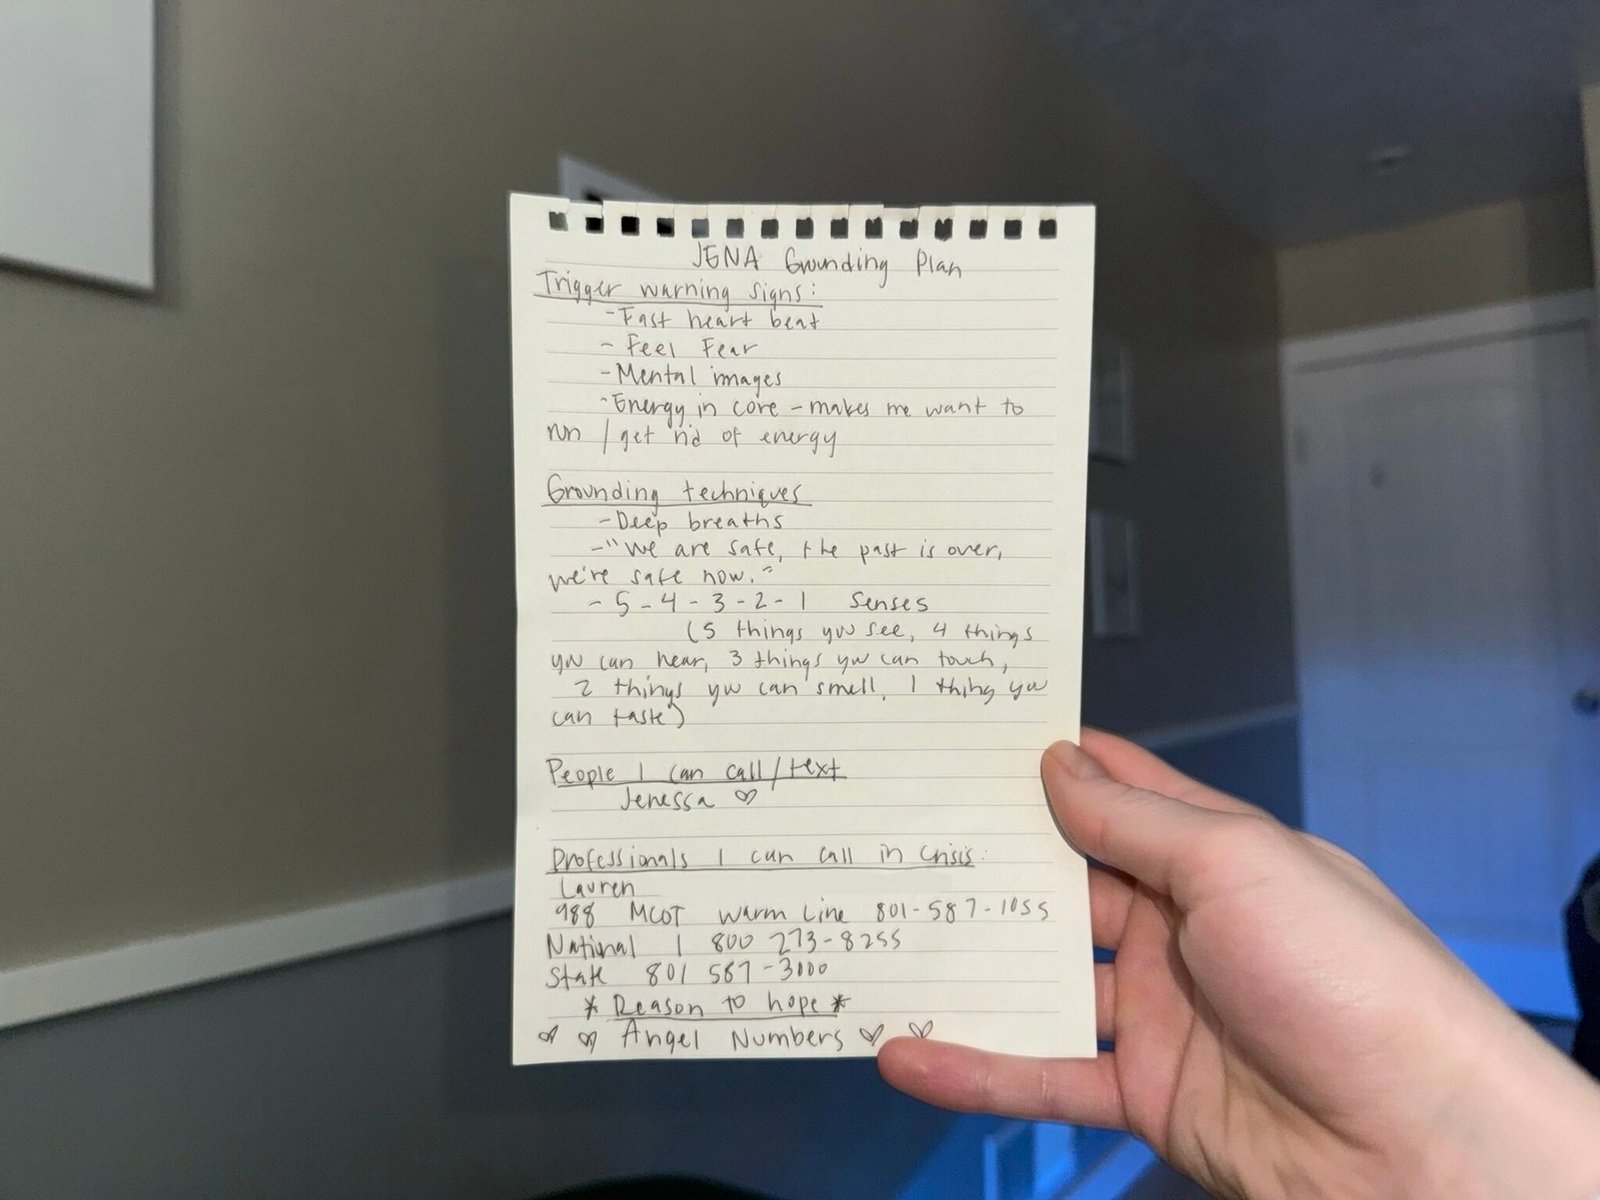 JENA Grounding Plan
Trigger warning signs:
- Fast heart beat
- Feel Fear
- Mental images
- Energy in core - makes me want to
run / get rid of energy
Grounding techniques
- Deep breaths
- "We are safe, the past is over,
we're safe now."
- 5 - 4 - 3 - 2 - 1 Senses
(5 things you see, 4 things
you can hear, 3 things you can touch,
2 things you can smell, 1 thing you
can taste)
People I can call/text
Jenessa ♡
Professionals I can call in Crisis:
Lauren
988 MCOT warm Line 801-587-1055
National 1 800 273-8255
State 801 587-3000
* Reason to hope *
♡ ♡ Angel Numbers ♡ ♡